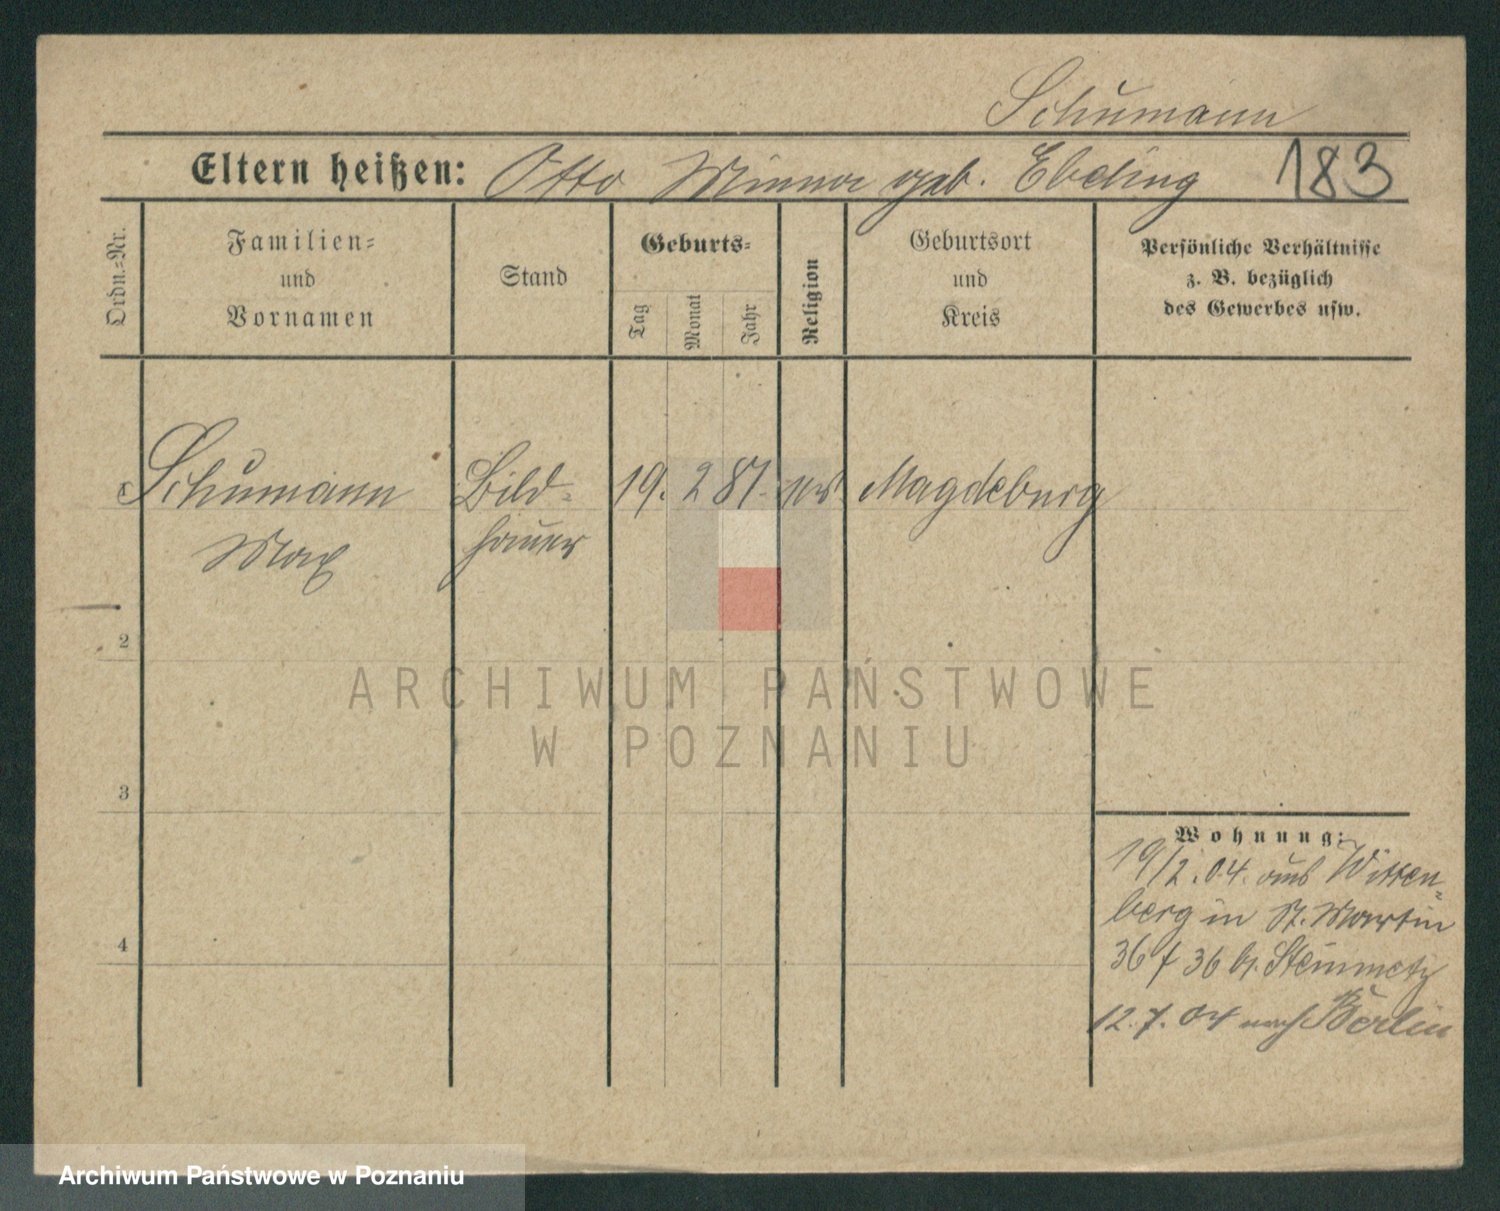 Schumann
Eltern heißen: Otto Minna geb. Ebeling 183
Ordn.-Nr.
Familien-
und
Vornamen
Stand
Geburts-
Tag
Monat
Jahr
Religion
Geburtsort
und
Kreis
Persönliche Verhältnisse
z. B. bezüglich
des Gewerbes usw.
Schumann Bild- 19. 2 81. Magdeburg
Max hauer
2
3
4
Wohnung:
19/2.04. aus Witten-
berg in St. Martin
36 f 36 b. Steinmetz
12.7.04 nach Berlin
ARCHIWUM PAŃSTWOWE
W POZNANIU
Archiwum Państwowe w Poznaniu